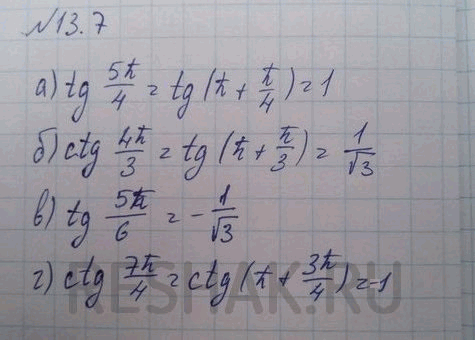 №13.7
а) tg 5π/4 = tg (π + π/4) = 1
б) ctg 4π/3 = tg (π + π/3) = 1/√3
в) tg 5π/6 = - 1/√3
г) ctg 7π/4 = ctg (π + 3π/4) = -1
RESHAK.RU